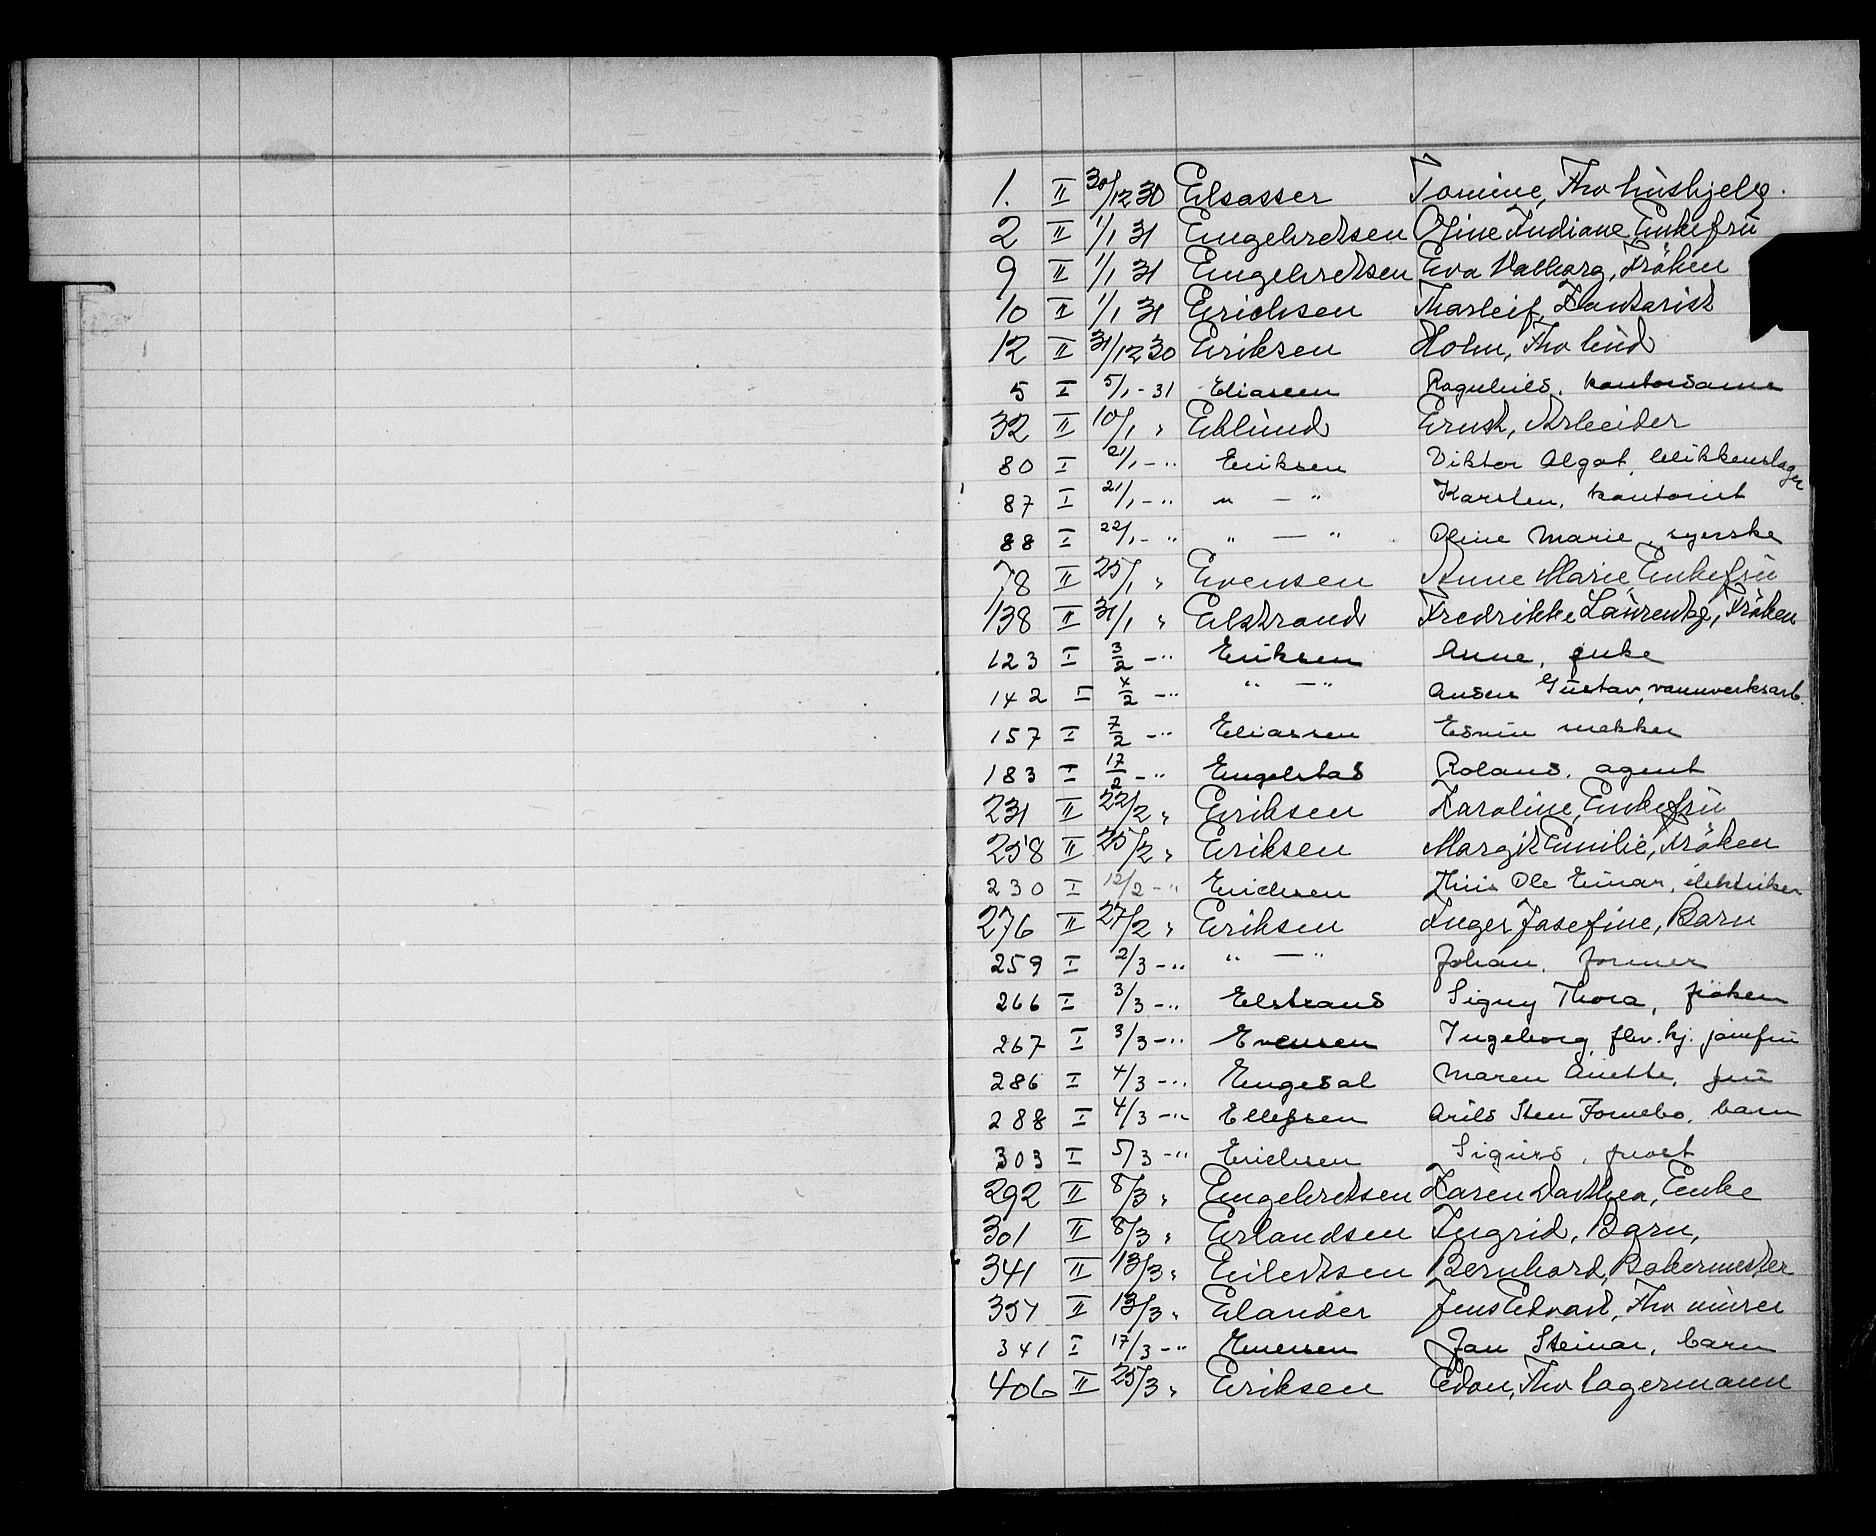 1. II 30/12 30 Elsasser Tomine, Fhv hushjelp.
2 II 1/1 31 Engebretsen Oline Indiane Enkefru
9 II 1/1 31 Engebretsen Eva Valborg, Frøken
10 II 1/1 31 Erichsen Thorleif, Kontorist
12 II 31/12 30 Eriksen Holm, Fhv
5 I 5/1 - 31 Eliassen Ragnhild, kontordame
32 II 10/1 " Eklund Ernst, Arbeider
80 I 21/1 - " Eriksen Viktor Algot, blikkenslager
87 I 21/1 - " " — " Karsten, kontorist
88 I 22/1 - " " — " Oline Marie, syerske
78 II 25/1 " Evensen Anne Marie Enkefru
138 II 31/1 " Elstrand Fredrikke Laurentze, Frøken
123 I 3/2 - " Eriksen Anne, enke
142 I 4/2 - " " — " Gustav, vannverksarb.
157 I 7/2 - " Eliassen Edvin snekker
183 I 17/2 - " Engelstad Roland, agent
231 II 22/2 " Eriksen Karoline, Enkefru
258 II 25/2 " Eriksen Margit Emilie, Frøken
230 I 12/2 - " Erichsen Ole Einar, elektriker
276 II 27/2 " Eriksen Inger Josefine, Barn
259 I 2/3 - " " — " Johan, former
266 I 3/3 - " Elstrand Signy Thora, frøken
267 I 3/3 - " Evensen Ingeborg, fhv. kj. jomfru
286 I 4/3 - " Engedal Maren Anette, fru
288 I 4/3 - " Ellefsen Arild Sten Fornebo, barn
303 I 5/3 - " Erichsen Sigurd, provst
292 II 8/3 " Engebretsen Karen Dorthea, Enke
301 II 8/3 " Erlandsen Ingrid, Barn,
341 II 13/3 " Eilertsen Bernhard, Bakermester
351 II 13/3 " Elander Jens Edvard, Fhv murer
341 I 17/3 - " Evensen Jan Steinar, barn
406 II 25/3 " Eriksen Edon, Fhv lagermann